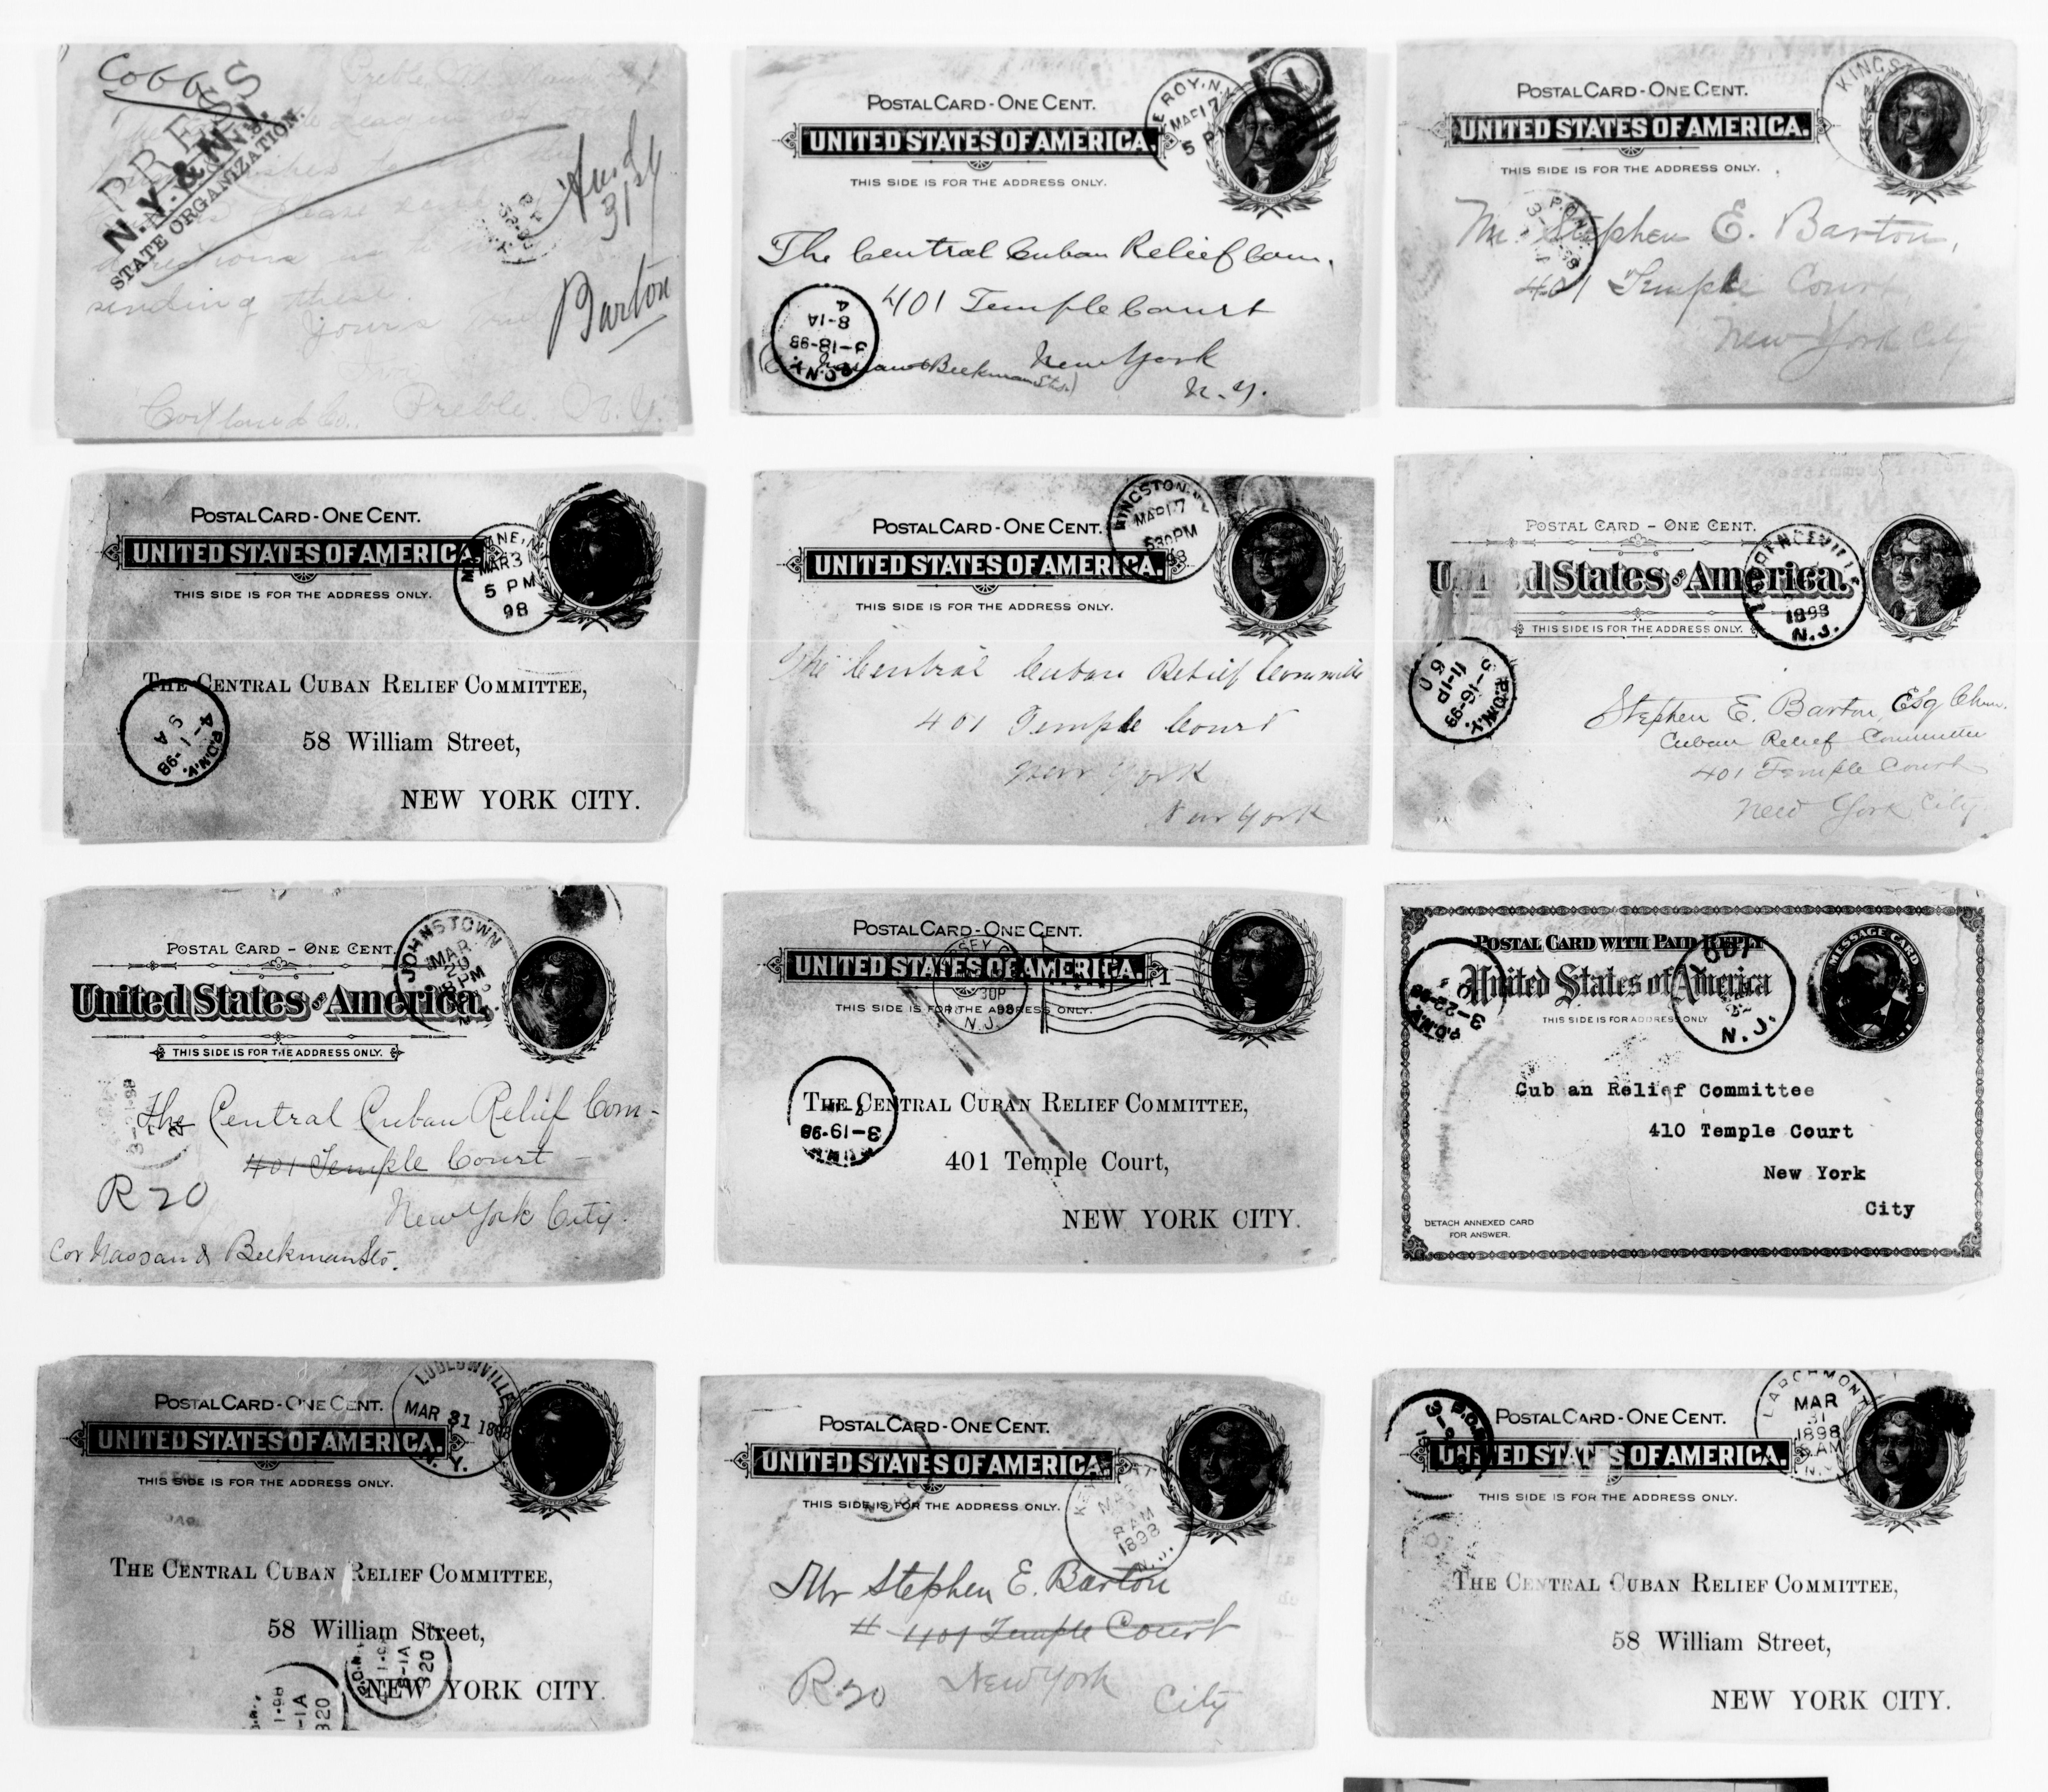 Cobb
PRESS
N.Y. & N.J.
STATE ORGANIZATION.
Preble
sending these.
Yours
Barton
Cortland Co. Preble. N.Y.
POSTAL CARD - ONE CENT.
UNITED STATES OF AMERICA.
THIS SIDE IS FOR THE ADDRESS ONLY.
LE ROY, N.Y.
MAR 17
5 P
The Central Cuban Relief Com.
401 Temple Court
New York
N.Y.
3-18-98
8-1A
4
POSTAL CARD - ONE CENT.
UNITED STATES OF AMERICA.
THIS SIDE IS FOR THE ADDRESS ONLY.
Mr. Stephen E. Barton,
401 Temple Court,
New York City
POSTAL CARD - ONE CENT.
UNITED STATES OF AMERICA.
THIS SIDE IS FOR THE ADDRESS ONLY.
MAR 31
5 PM
98
THE CENTRAL CUBAN RELIEF COMMITTEE,
58 William Street,
NEW YORK CITY.
P.O.N.Y.
4-1-98
9 A
POSTAL CARD - ONE CENT.
UNITED STATES OF AMERICA.
THIS SIDE IS FOR THE ADDRESS ONLY.
KINGSTON, N.Y.
MAR 17
530 PM
98
The Central Cuban Relief Committee
401 Temple Court
New York
New York
POSTAL CARD - ONE CENT.
United States of America.
THIS SIDE IS FOR THE ADDRESS ONLY.
1898
N.J.
P.O.N.Y.
3-16-98
11-1P
Stephen E. Barton, Esq Chm.
Cuban Relief Committee
401 Temple Court
New York City
POSTAL CARD - ONE CENT.
United States of America.
THIS SIDE IS FOR THE ADDRESS ONLY.
JOHNSTOWN
MAR
20
PM
The Central Cuban Relief Com-
401 Temple Court
R 20
New York City.
Cor Nassau & Beekman Sts.
POSTAL CARD - ONE CENT.
UNITED STATES OF AMERICA.
THIS SIDE IS FOR THE ADDRESS ONLY.
30P
98
N.J.
1
THE CENTRAL CUBAN RELIEF COMMITTEE,
401 Temple Court,
NEW YORK CITY.
3-19-98
POSTAL CARD WITH PAID REPLY
United States of America
THIS SIDE IS FOR ADDRESS ONLY
MESSAGE CARD
N.J.
P.O.N.Y.
3-22-98
Cub an Relief Committee
410 Temple Court
New York
City
DETACH ANNEXED CARD
FOR ANSWER.
POSTAL CARD - ONE CENT.
UNITED STATES OF AMERICA.
THIS SIDE IS FOR THE ADDRESS ONLY.
LUDLOWVILLE
MAR 31 1898
N.Y.
THE CENTRAL CUBAN RELIEF COMMITTEE,
58 William Street,
NEW YORK CITY.
POSTAL CARD - ONE CENT.
UNITED STATES OF AMERICA.
THIS SIDE IS FOR THE ADDRESS ONLY.
MAR
8 AM
1898
N.J.
Mr Stephen E. Barton
# 401 Temple Court
R 20 New York
City
POSTAL CARD - ONE CENT.
UNITED STATES OF AMERICA.
THIS SIDE IS FOR THE ADDRESS ONLY.
LARCHMONT
MAR
31
1898
AM
N.Y.
THE CENTRAL CUBAN RELIEF COMMITTEE,
58 William Street,
NEW YORK CITY.